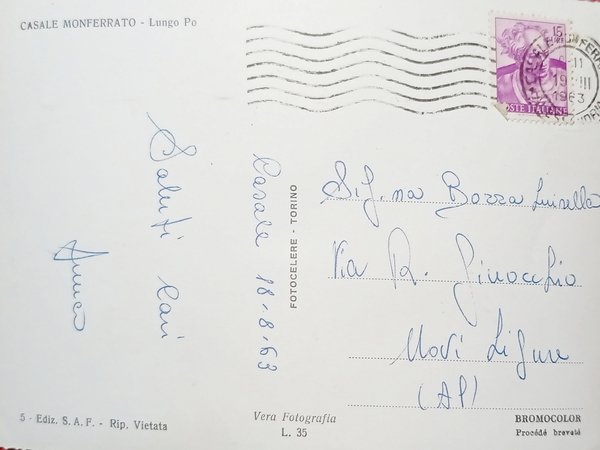 CASALE MONFERRATO - Lungo Po
15
POSTE ITALIANE
1963
Saluti cari
Casale 18-8-63
FOTOCELERE - TORINO
Sig.na Bozza Luisella
Via R. Ginocchio
Novi Ligure
(Al)
5 - Ediz. S. A. F. - Rip. Vietata
Vera Fotografia
L. 35
BROMOCOLOR
Procédé breveté